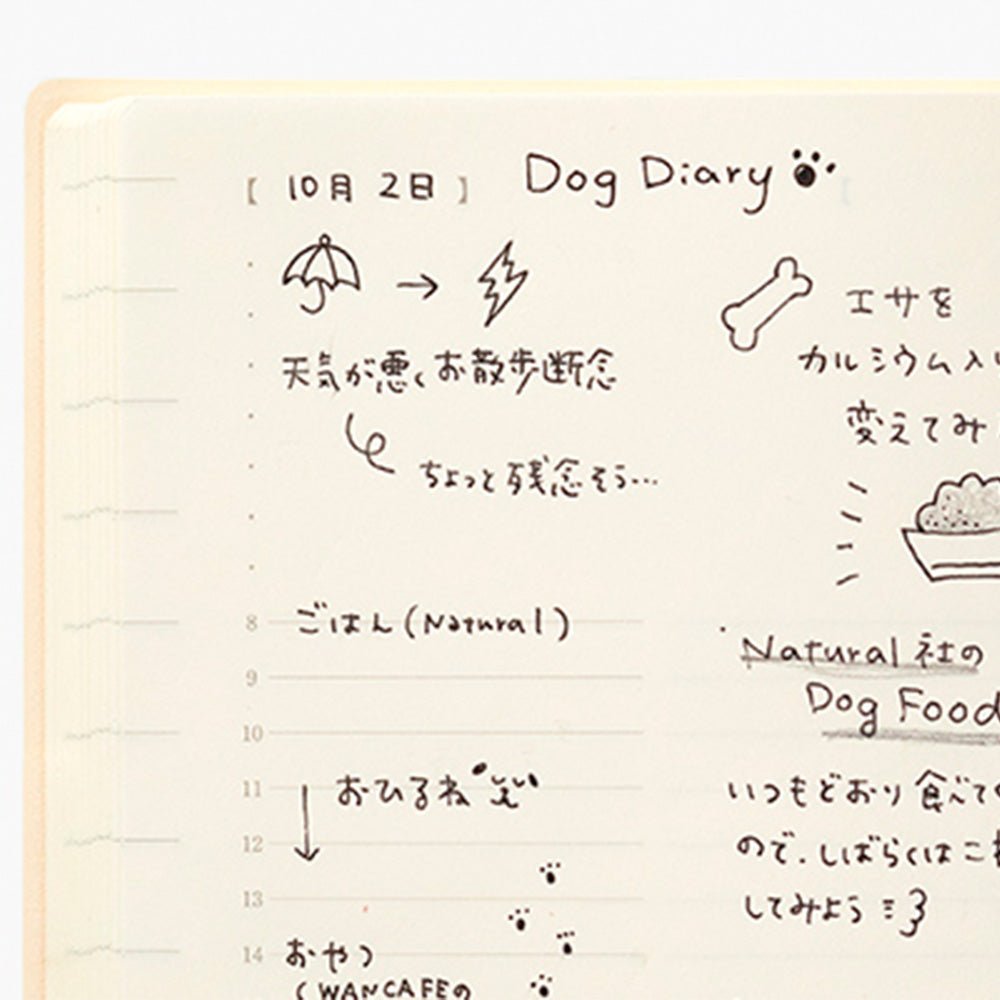 [ 10月 2日 ] Dog Diary
天気が悪くお散歩断念
ちょっと残念そう…
8 ごはん(Natural)
9
10
11 おひるね
12
13
14 おやつ
(WANCAFEの
エサを
カルシウム入り
変えてみ
Natural社の
Dog Food
いつもどおり食べて
ので、しばらくはこ
してみよう